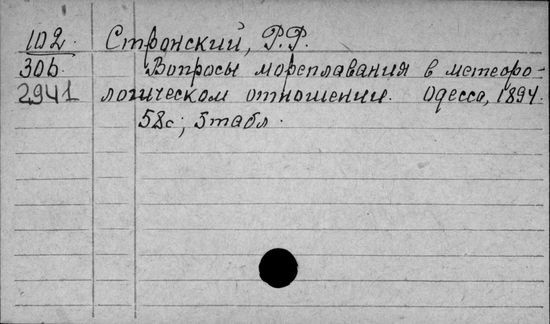 102. Стронский, Р.Р.
306. Вопросы мореплавания в метеоро-
2941 логическом отношении. Одесса, 1894.
58с; 5табл.